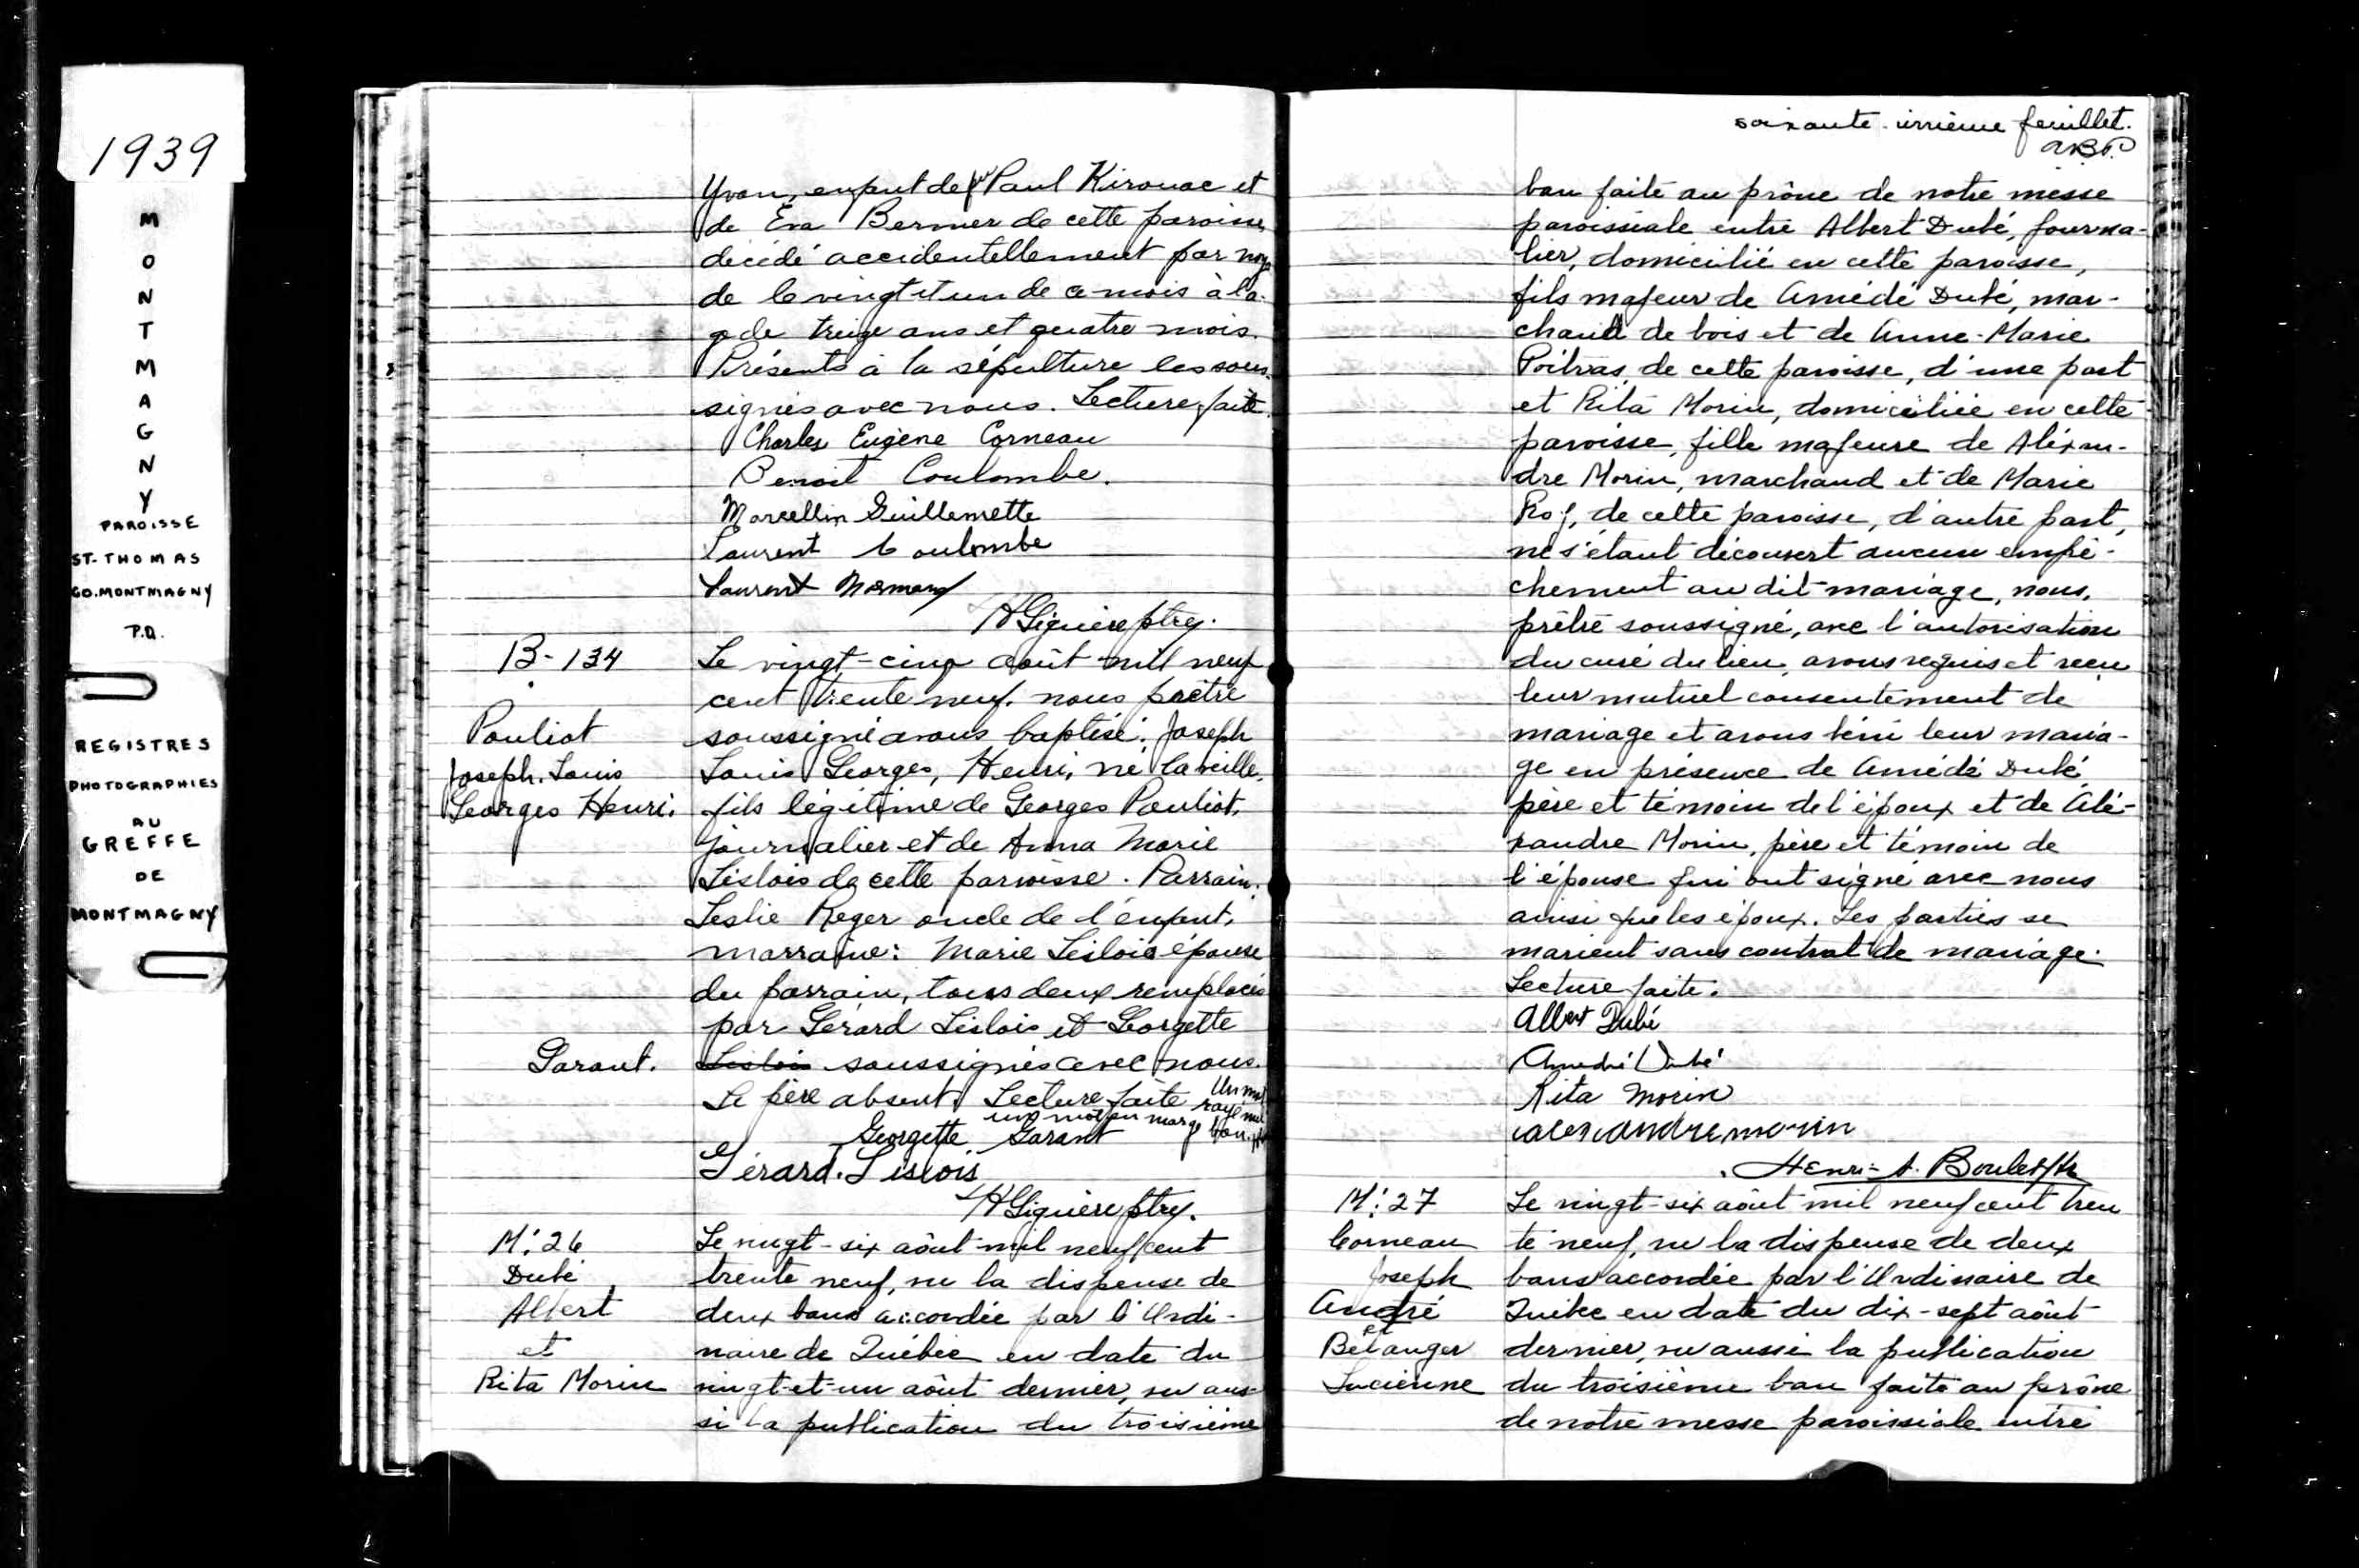 1939
M
O
N
T
M
A
G
N
Y
PAROISSE
ST-THOMAS
CO. MONTMAGNY
P.Q.
REGISTRES
PHOTOGRAPHIES
AU
GREFFE
DE
MONTMAGNY
Yvan, enfant de feu Paul Kirouac et
de Eva Bernier de cette paroisse,
décédé accidentellement par noya
de le vingt et un de ce mois à l'a-
ge de treize ans et quatre mois.
Présents à la sépulture les sous-
signés avec nous. Lecture faite.
Charles Eugène Corneau
Benoit Coulombe.
Marcellin Guillemette
Laurent Coulombe
Laurent Normand
ptre.
B-134
Pouliot
Joseph. Louis
Georges Henri.
Le vingt-cinq août mil neuf
cent trente neuf. nous prêtre
soussigné avons baptisé: Joseph
Louis Georges, Henri, né la veille,
fils légitime de Georges Pouliot,
journalier et de Anna Marie
Lislois de cette paroisse. Parrain:
Leslie Reger oncle de l'enfant,
marraine: Marie Lislois épouse
du parrain, tous deux remplacés
par Gérard Lislois et Georgette
Garant. Lislois soussignés avec nous.
Le père absent. Lecture faite Un mot
rayé nul
un mot en marge bon.
Georgette Garant
Gérard. Lislois
ptre.
M: 26
Dubé
Albert
et
Rita Morin
Le vingt-six août mil neuf cent
trente neuf, vu la dispense de
deux bans accordée par l'Ordi-
naire de Québec en date du
vingt-et-un août dernier, vu aus-
si la publication du troisième
soixante-unième feuillet.
A.B.P.
ban faite au prône de notre messe
paroissiale entre Albert Dubé, journa-
lier, domicilié en cette paroisse,
fils majeur de Amédé Dubé, mar-
chand de bois et de Anne-Marie
Poitras, de cette paroisse, d'une part
et Rita Morin, domiciliée en cette
paroisse, fille majeure de Aléxan-
dre Morin, marchand et de Marie
Roy, de cette paroisse, d'autre part,
ne s'étant découvert aucun empê-
chement au dit mariage, nous,
prêtre soussigné, avec l'autorisation
du curé du lieu, avons requis et reçu
leur mutuel consentement de
mariage et avons béni leur maria-
ge en présence de Amédé Dubé
père et témoin de l'époux et de Alé-
xandre Morin, père et témoin de
l'épouse qui ont signé avec nous
ainsi que les époux. Les parties se
marient sans contrat de mariage.
Lecture faite.
Albert Dubé
Amedé Dubé
Rita Morin
alexandre morin
Henri-A. Boulet ptr
M: 27
Corneau
Joseph
André
et
Bélanger
Lucienne
Le vingt-six août mil neuf cent tren
te neuf, vu la dispense de deux
bans accordée par l'Ordinaire de
Québec en date du dix-sept août
dernier, vu aussi la publication
du troisième ban faite au prône
de notre messe paroissiale entre